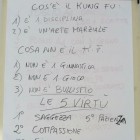 COS'È IL KUNG FU
1) È 1 DISCIPLINA
2) È UN'ARTE MARZIALE
COSA NON È IL
1) NON È 1 GINNASTICA
2) NON È 1 GIOCO
3) NON È BULLISTO
LE 5 VIRTÙ
1° SAGGEZZA 5° PAZIENZA
2° COMPASSIONE